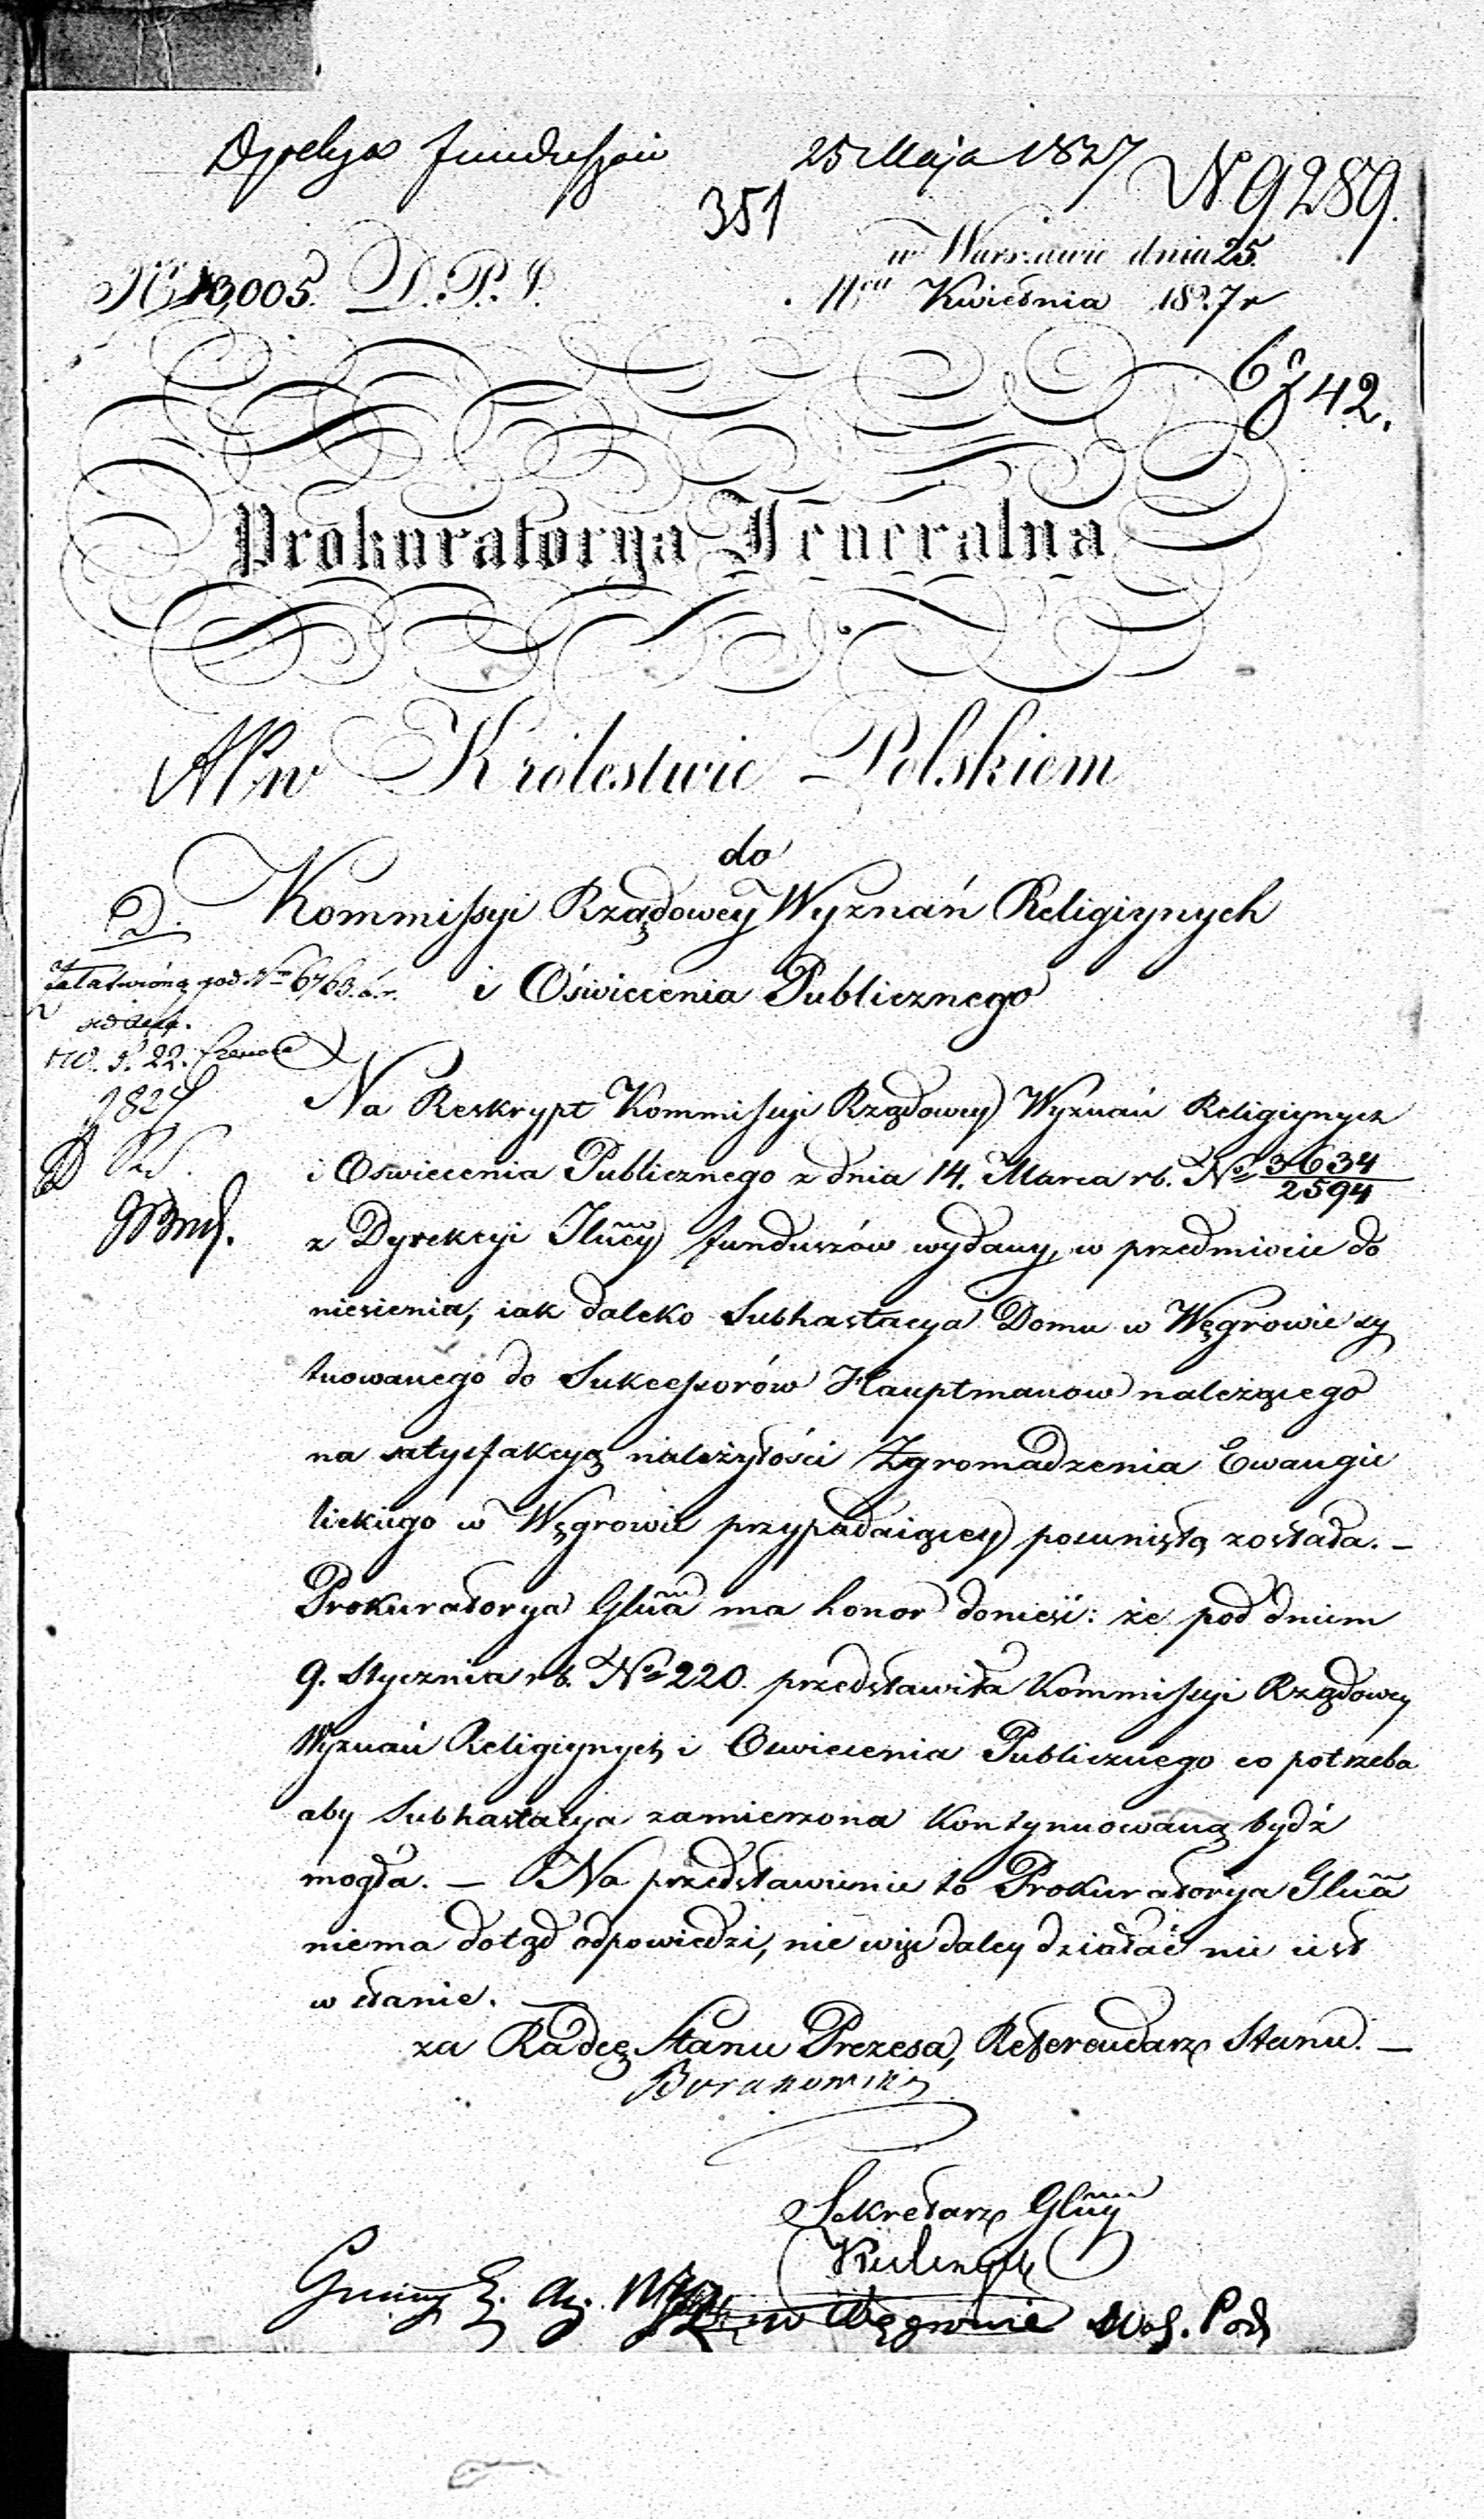 Dyrekcya funduszów 25 Maja 1827 N 9289.
351
w Warszawie dnia 25.
N 13,005. D. P. I. Kwietnia 1827 r
6742.
Prokuratorya Jeneralna
w Królestwie Polskiem
do
Kommissyi Rządowey Wyznań Religiynych
i Oświecenia Publicznego
D.
Załatwioną pod No 6763. b. r.
d. 22. Czerwca
1827
Na Reskrypt Kommissyi Rządowey Wyznań Religiynych
i Oswiecenia Publicznego z dnia 14. Marca rb. No 3634/2594
z Dyrekcyi Jlney funduszów wydany, w przedmiocie do
niesienia, iak daleko Subhastacya Domu w Węgrowie sy
tuowanego do Sukcessorów Hauptmanow należącego
na satysfakcyą należytości Zgromadzenia Ewangie
lickiego w Węgrowie przypadaiącey posuniętą została. —
Prokuratorya Glna ma honor donieść: że pod dniem
9. Stycznia rb. No 220. przedstawiła Kommissyi Rządowey
Wyznań Religiynych i Oswiecenia Publicznego co potrzeba
aby Subhastacya zamierzona kontynuowaną bydź
mogła. — Na przedstawienie to Prokuratorya Glna
niema dotąd odpowiedzi, nie więc daley działać nie iest
w stanie. —
za Radcę Stanu Prezesa, Referendarz Stanu. —
Sekretarz Glny
Gminy E. Aug. w Węgrowie Woj. Podl